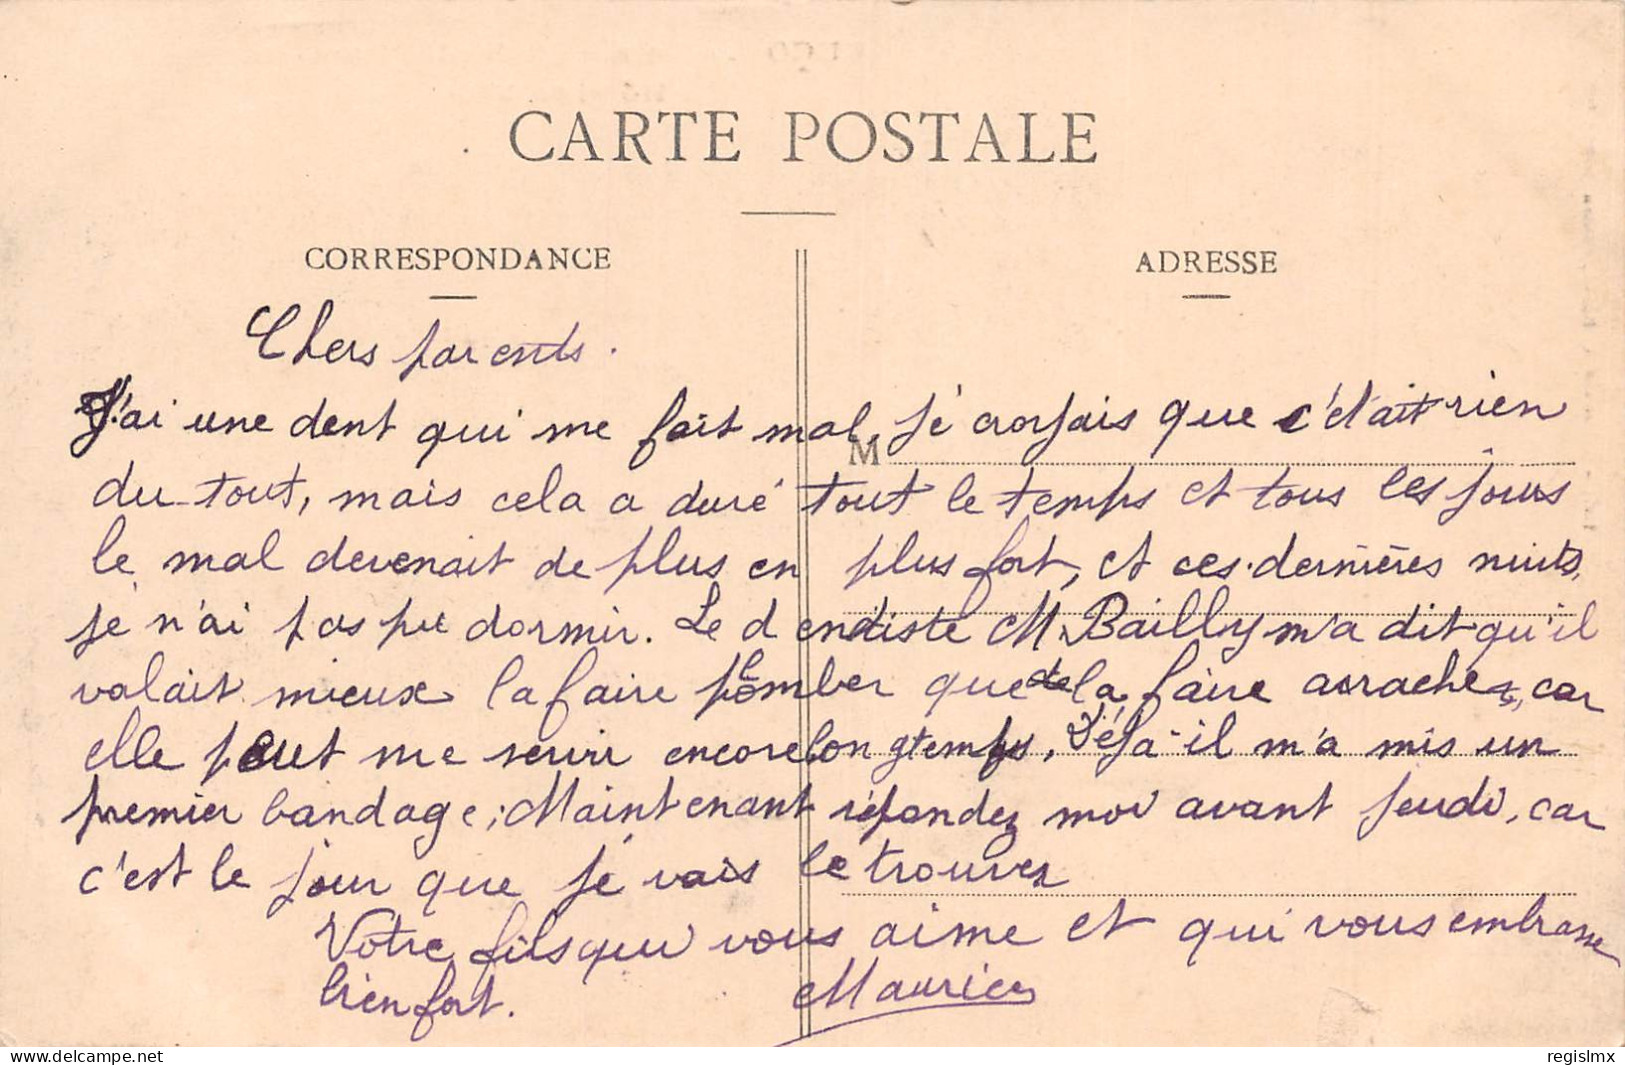 CARTE POSTALE
CORRESPONDANCE
ADRESSE
Chers parents.
J'ai une dent qui me fait mal, je croyais que c'était rien
M
du tout, mais cela a duré tout le temps et tous les jours
le mal devenait de plus en plus fort, et ces dernières nuits,
je n'ai pas pu dormir. Le dendiste M. Bailly m'a dit qu'il
valait mieux la faire plomber que de la faire arracher, car
elle peut me servir encore longtemps. Déjà il m'a mis un
premier bandage; Maintenant répondez moi avant jeudi, car
c'est le jour que je vais le trouver
Votre fils qui vous aime et qui vous embrasse
bien fort. Maurice
www.delcampe.net
regislmx